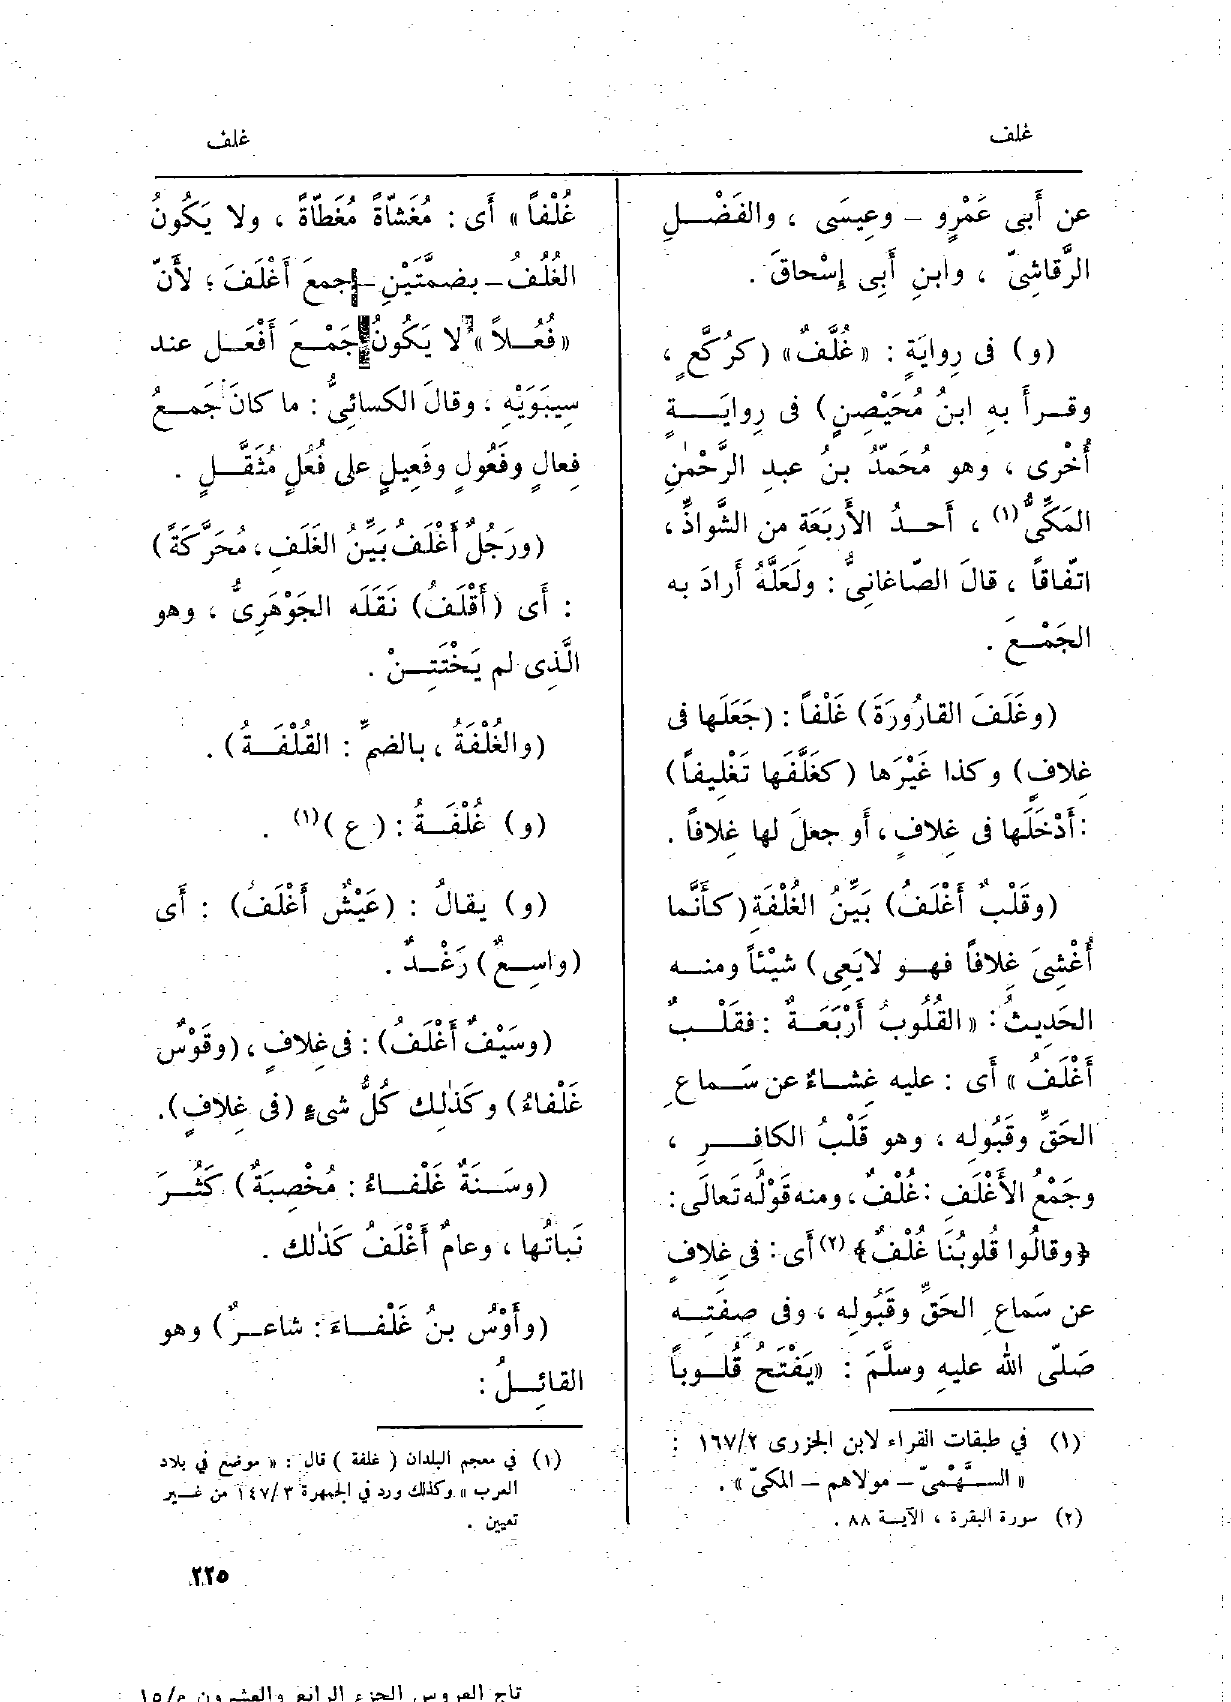 غلف
غلف
عن أَبى عَمْرٍو – وعِيسَى ، والفَضْـلِ
الرَّقاشِىّ ، وابنِ أَبِى إِسْحاقَ .
(و) فى رِوايَةٍ : «غُلَّفٌ» (كرُكَّعٍ ،
وقـرأَ به ابنُ مُحَيْصِنٍ) فى رِوايَـــةٍ
أُخْرى ، وهو مُحَمّدُ بنُ عبدِ الرَّحْمٰنِ
المَكِّىُّ(١) ، أَحـدُ الأَرْبَعَةِ من الشَّواذِّ ،
اتّفاقاً ، قالَ الصّاغانِىُّ : ولَعَلَّهُ أَرادَ به
الجَمْـعَ .
(وغَلَفَ القارُورَةَ) غَلْفاً : (جَعَلَها فى
غِلافٍ) وكذا غَيْرَها (كغَلَّفَها تَغْلِيفاً)
:أَدْخَلَها فى غِلافٍ ، أَو جعلَ لها غِلافاً .
(وقَلْبٌ أَغْلَفُ) بَيِّنُ الغُلْفَةِ (كأَنَّما
أُغْشِىَ غِلافاً فهـو لايَعِى) شيْئاً ومنـه
الحَدِيثُ : «القُلُوبُ أَرْبَعَـةٌ : فقَلْـبٌ
أَغْلَفُ » أَى : عليه غِشاءٌ عن سَـماعِ
الحَقِّ وقَبُولِه ، وهو قَلْبُ الكافِـرِ ،
وجَمْعُ الأَغْلَفِ : غُلْفٌ ، ومنه قَوْلُه تَعالَى :
﴿وقالُوا قُلوبُنَا غُلْفٌ﴾ (٢) أَى : فى غِلافٍ
عن سَماعِ الحَقِّ وقَبُولِه ، وفى صِفَتِـه
صَلّى الله عليهِ وسلَّمَ : «يَفْتَحُ قُلـوباً
(١) في طبقات القراء لابن الجزرى ١٦٧/٢ :
« السَّهْمىّ – مولاهم – المكىّ » .
(٢) سورة البقرة ، الآيـة ٨٨ .
غُلْفاً » أَى : مُغَشّاةً مُغَطّاةً ، ولا يَكُونُ
الغُلُفُ – بضمتَّيْنِ – جمعَ أَغْلَفَ ؛ لأَنّ
«فُعُـلاً» لا يَكُونُ جَمْـعَ أَفْعَـل عند
سِيبَوَيْهِ ، وقالَ الكسائِىُّ : ما كانَ جَمـعُ
فِعالٍ وفَعُولٍ وفَعِيلٍ على فُعُلٍ مُثَقَّـلٍ .
(ورَجُلٌ أَغْلَفُ بَيِّنُ الغَلَفِ ، مُحَرَّكَةً)
: أَى (أَقْلَفُ) نَقَلَه الجَوْهَرِىُّ ، وهو
الَّذِى لم يَخْتَتِـنْ .
(والغُلْفَةُ ، بالضمِّ : القُلْفَـةُ) .
(و) غُلْفَـةُ : ( ع )(١) .
(و) يقالُ : (عَيْشٌ أَغْلَفُ) : أَى
(واسِـعٌ) رَغْـدٌ .
(وسَيْفٌ أَغْلَفُ) : فى غِلافٍ ، (وقَوْسٌ
غَلْفاءُ) وكَذٰلِك كُلُّ شىءٍ (فى غِلافٍ) .
(وسَـنَةٌ غَلْفـاءُ : مُخْصِبَةٌ) كَثُـرَ
نَباتُها ، وعامٌ أَغْلَفُ كَذٰلك .
(وأَوْسُ بنُ غَلْفـاءَ : شاعـرٌ) وهو
القائِـلُ :
(١) في معجم البلدان ( غلفة ) قال : « موضع في بلاد
العرب » وكذلك ورد في الجمهرة ١٤٧/٣ من غـير
تعيين .
٢٢٥
تاج العروس الجزء الرابع والعشرون م/١٥